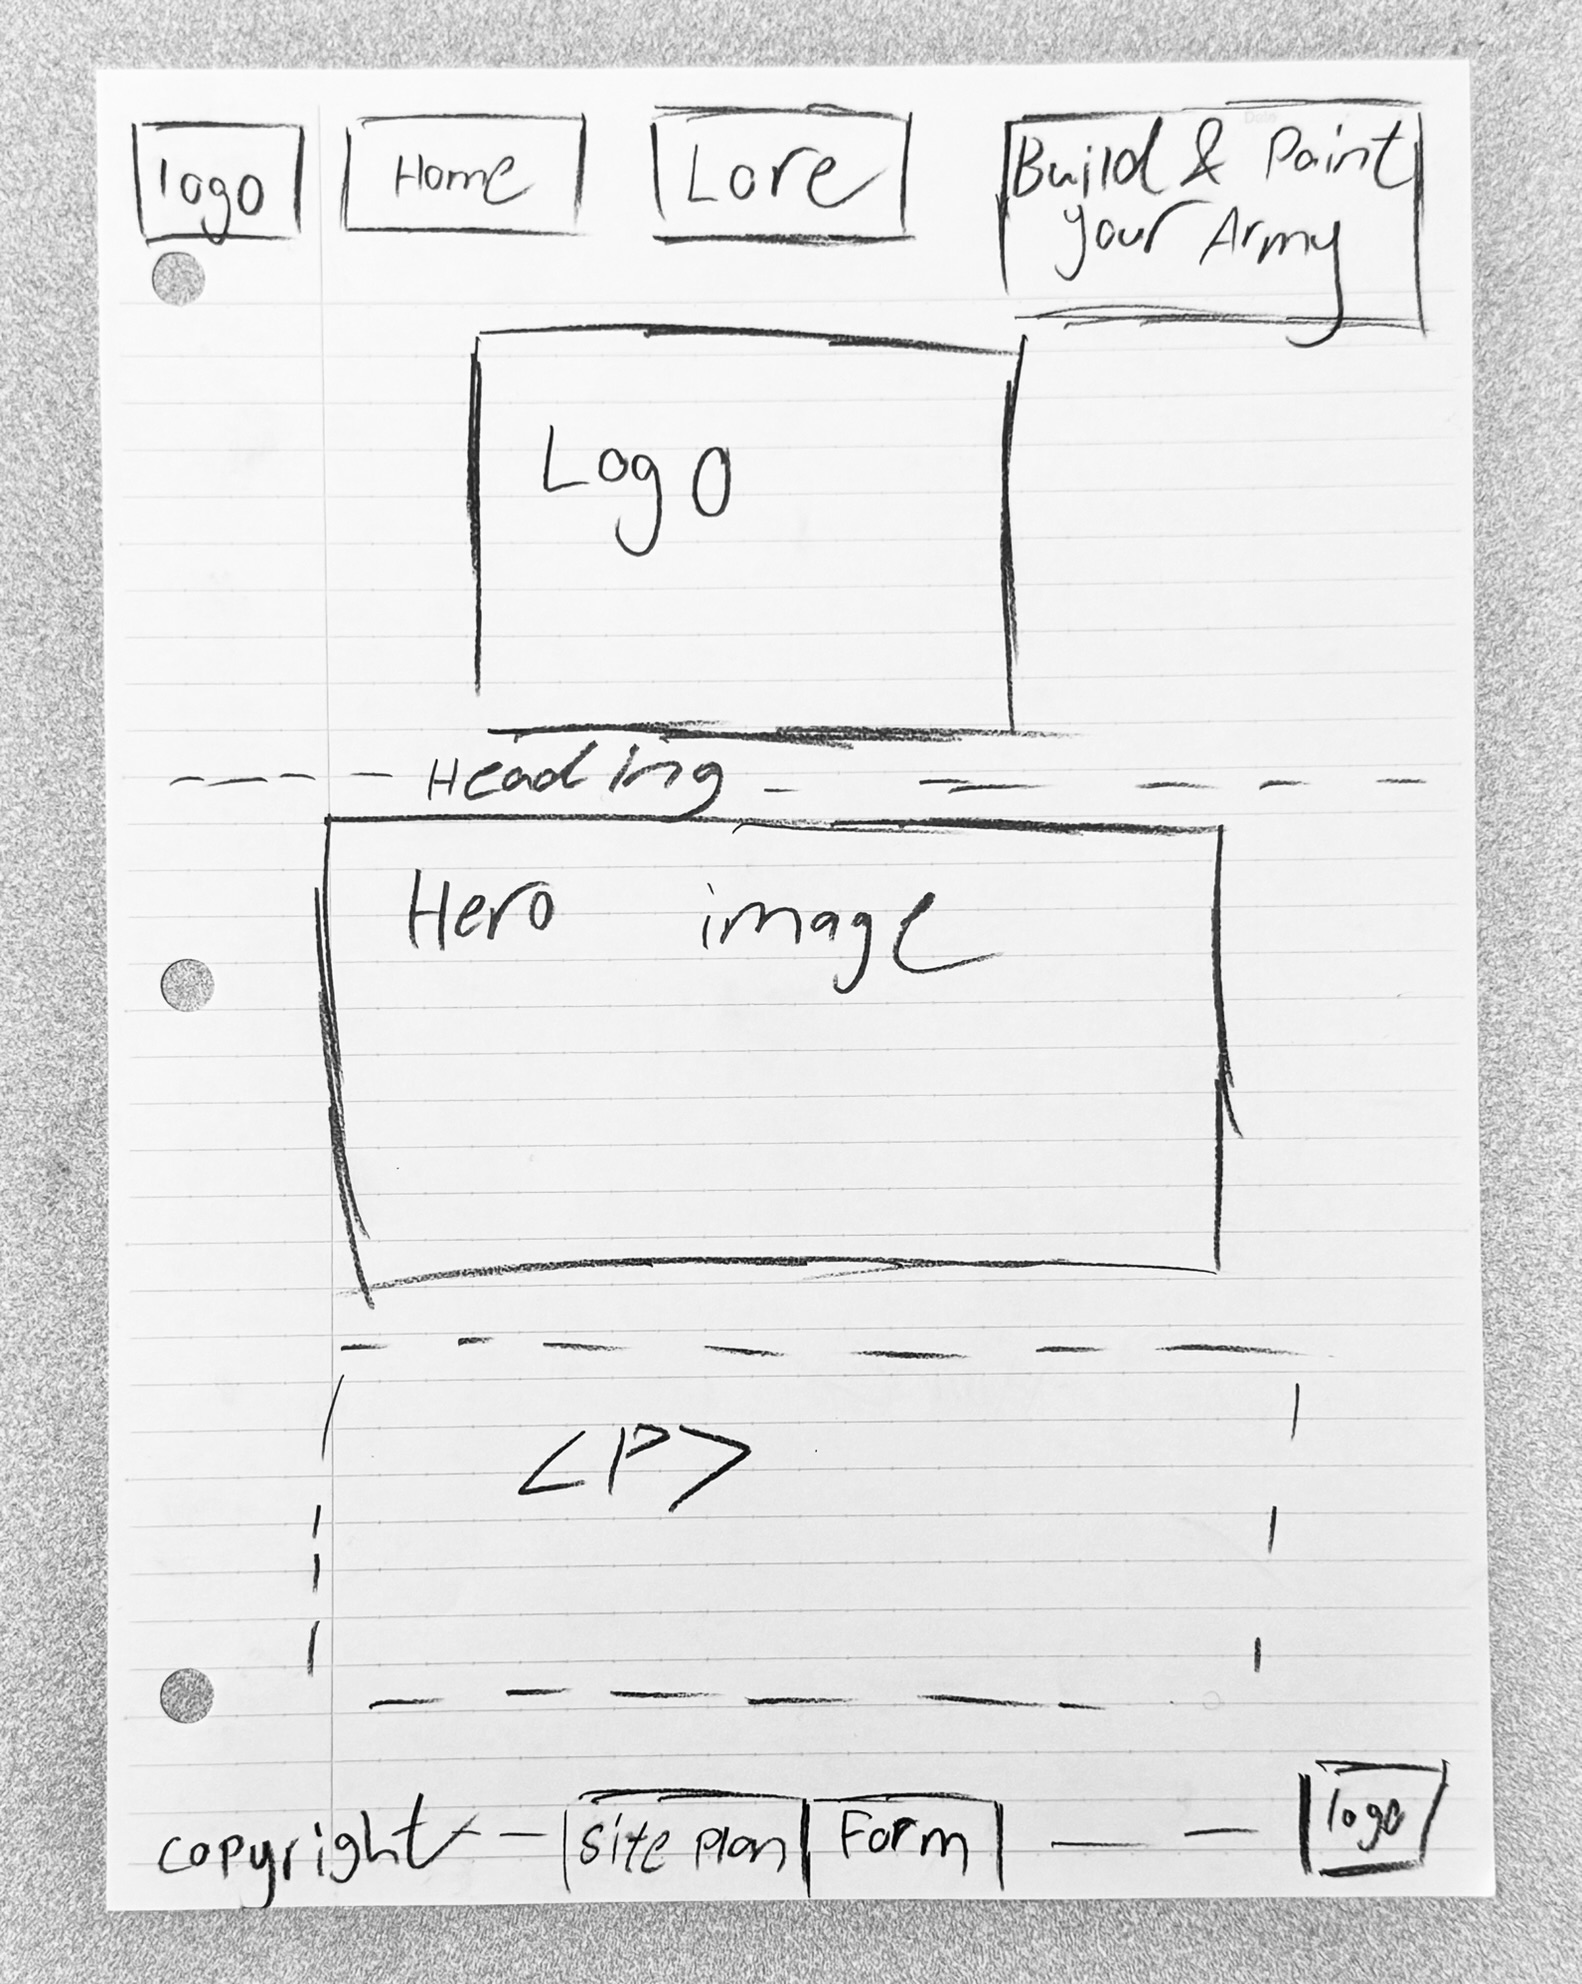 logo Home Lore Build & Paint
your Army
Logo
Heading
Hero image
<P>
copyright site plan Form logo